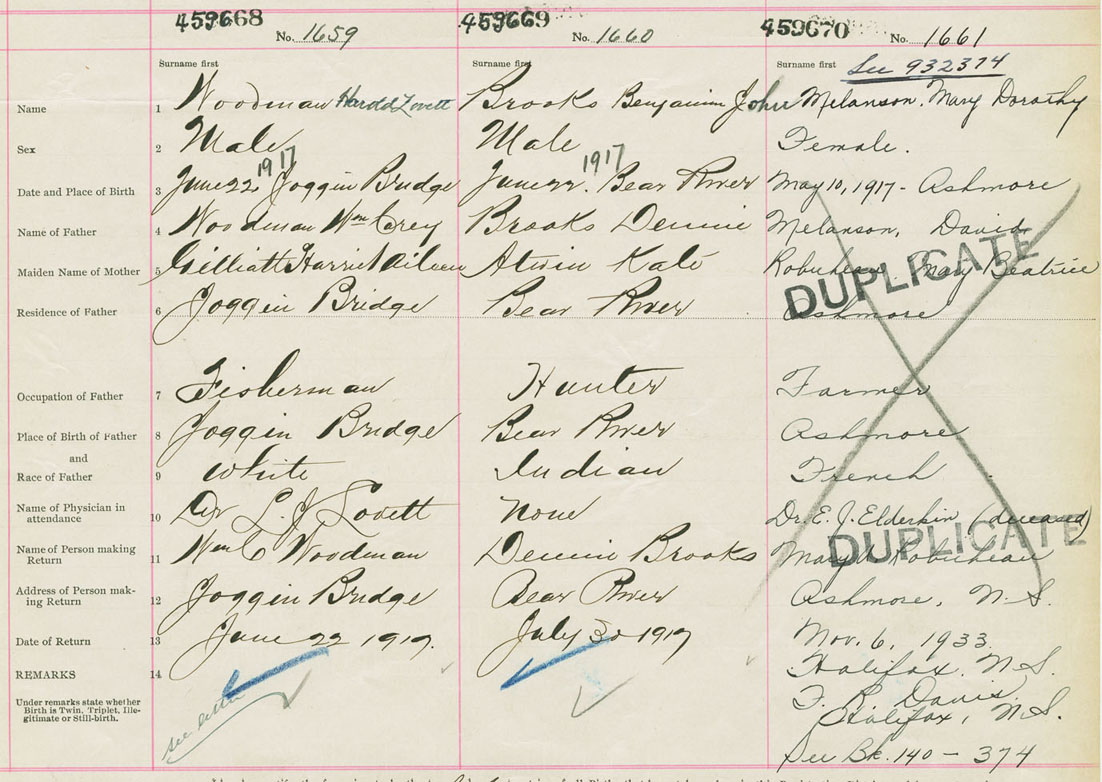 459668 459669 459670
No. 1659 No. 1660 No. 1661
Surname first Surname first Surname first See 932374
Name 1 Woodman Harold Lovett Brooks Benjamin John Melanson, Mary Dorothy
Sex 2 Male Male Female.
1917 1917
Date and Place of Birth 3 June 22 Joggin Bridge June 22. Bear River May 10, 1917 - Ashmore
Name of Father 4 Woodman Wm Corey Brooks Dennie Melanson, David
Maiden Name of Mother 5 Gilliatt Harriet Aileen Atwin Kate Robicheau, Mary Beatrice
DUPLICATE
Residence of Father 6 Joggin Bridge Bear River Ashmore
Occupation of Father 7 Fisherman Hunter Farmer
Place of Birth of Father 8 Joggin Bridge Bear River Ashmore
and
Race of Father 9 White Indian French
Name of Physician in 10 Dr L. J Lovett None Dr. E. J. Elderkin (deceased)
attendance
DUPLICATE
Name of Person making 11 Wm C Woodman Dennie Brooks Mary Robicheau
Return
Address of Person mak- 12 Joggin Bridge Bear River Ashmore, N.S.
ing Return
Date of Return 13 June 22 1917. July 30 1917 Nov. 6, 1933
REMARKS 14 Halifax, N.S.
Under remarks state whether
Birth is Twin, Triplet, Ille-
gitimate or Still-birth.
see letter
F. R. Davis
Halifax, N.S.
See Bk. 140 - 374